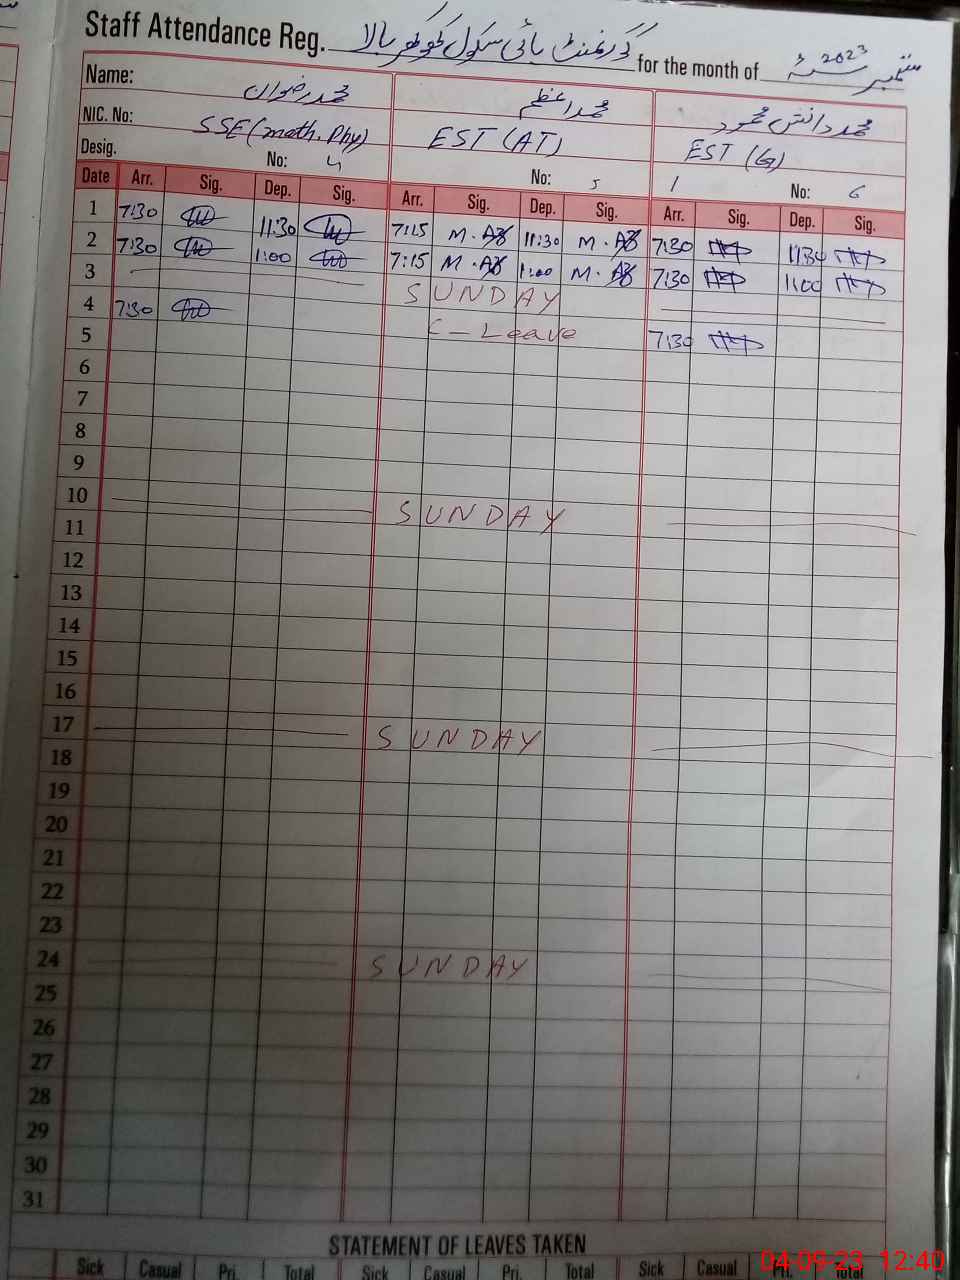 Staff Attendance Reg. گورنمنٹ ہائی سکول بالا for the month of ستمبر 2023ء
Name: محمد رضوان محمد اعظم محمد دانش محمود
NIC. No: SSE (math. Phy) EST (AT) EST (G)
Desig. No: 4 No: 5 No: 6
Date Arr. Sig. Dep. Sig. Arr. Sig. Dep. Sig. Arr. Sig. Dep. Sig.
1 7:30 11:30 7:15 11:30 7:30 11:30
2 7:30 1:00 7:15 1:00 7:30 11:00
3 SUNDAY
4 7:30 C-Leave 7:30
5
6
7
8
9
10 SUNDAY
11
12
13
14
15
16
17 SUNDAY
18
19
20
21
22
23
24 SUNDAY
25
26
27
28
29
30
31
STATEMENT OF LEAVES TAKEN
Sick Casual Pri. Total Sick Casual Pri. Total Sick Casual Pri. Total
04-09-23 12:40